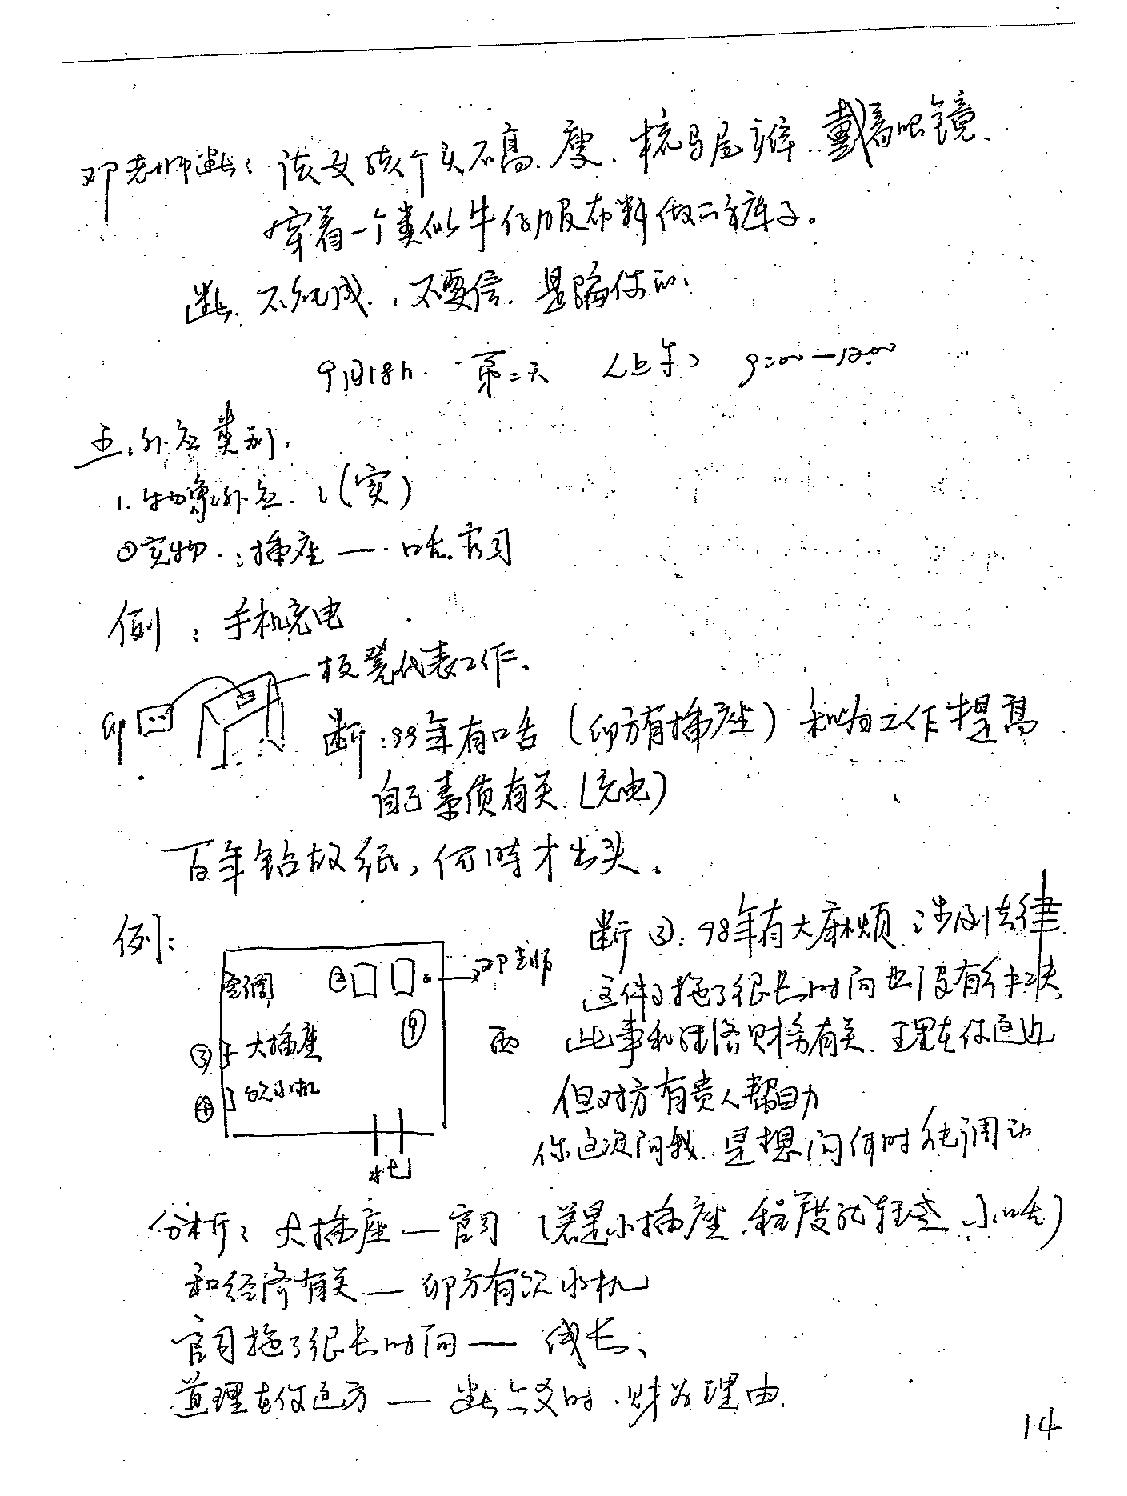 邓老师断：该女孩个头不高、瘦、梳马尾辫、戴着眼镜、
穿着一个类似牛仔服布料做的裤子。
断：不能成，不要信，是骗你的。
9月18日 第二天 （上午） 9:00—12:00
五、外应类别。
1.物象外应：（实）
①实物：插座—口舌官司
例：手机充电
板凳代表工作、
卯
断：99年有口舌（卯方有插座）和为工作提高
自己素质有关（充电）
百年钻故纸，何时才出头。
例：
断②：98年有大麻烦：涉到法律
空调 ② 邓老师
这件事拖了很长时间也没有解决
① 西
③ 大插座
此事和经济财务有关、理在你这边
④ 饮水机
但对方有贵人帮助
你这次问我，是想问何时能调动
分析：大插座—官司（若是小插座，程度就轻些，小口舌）
和经济有关—卯方有饮水机
官司拖了很长时间—线长；
道理在你这方—断六爻时，财为理由
14